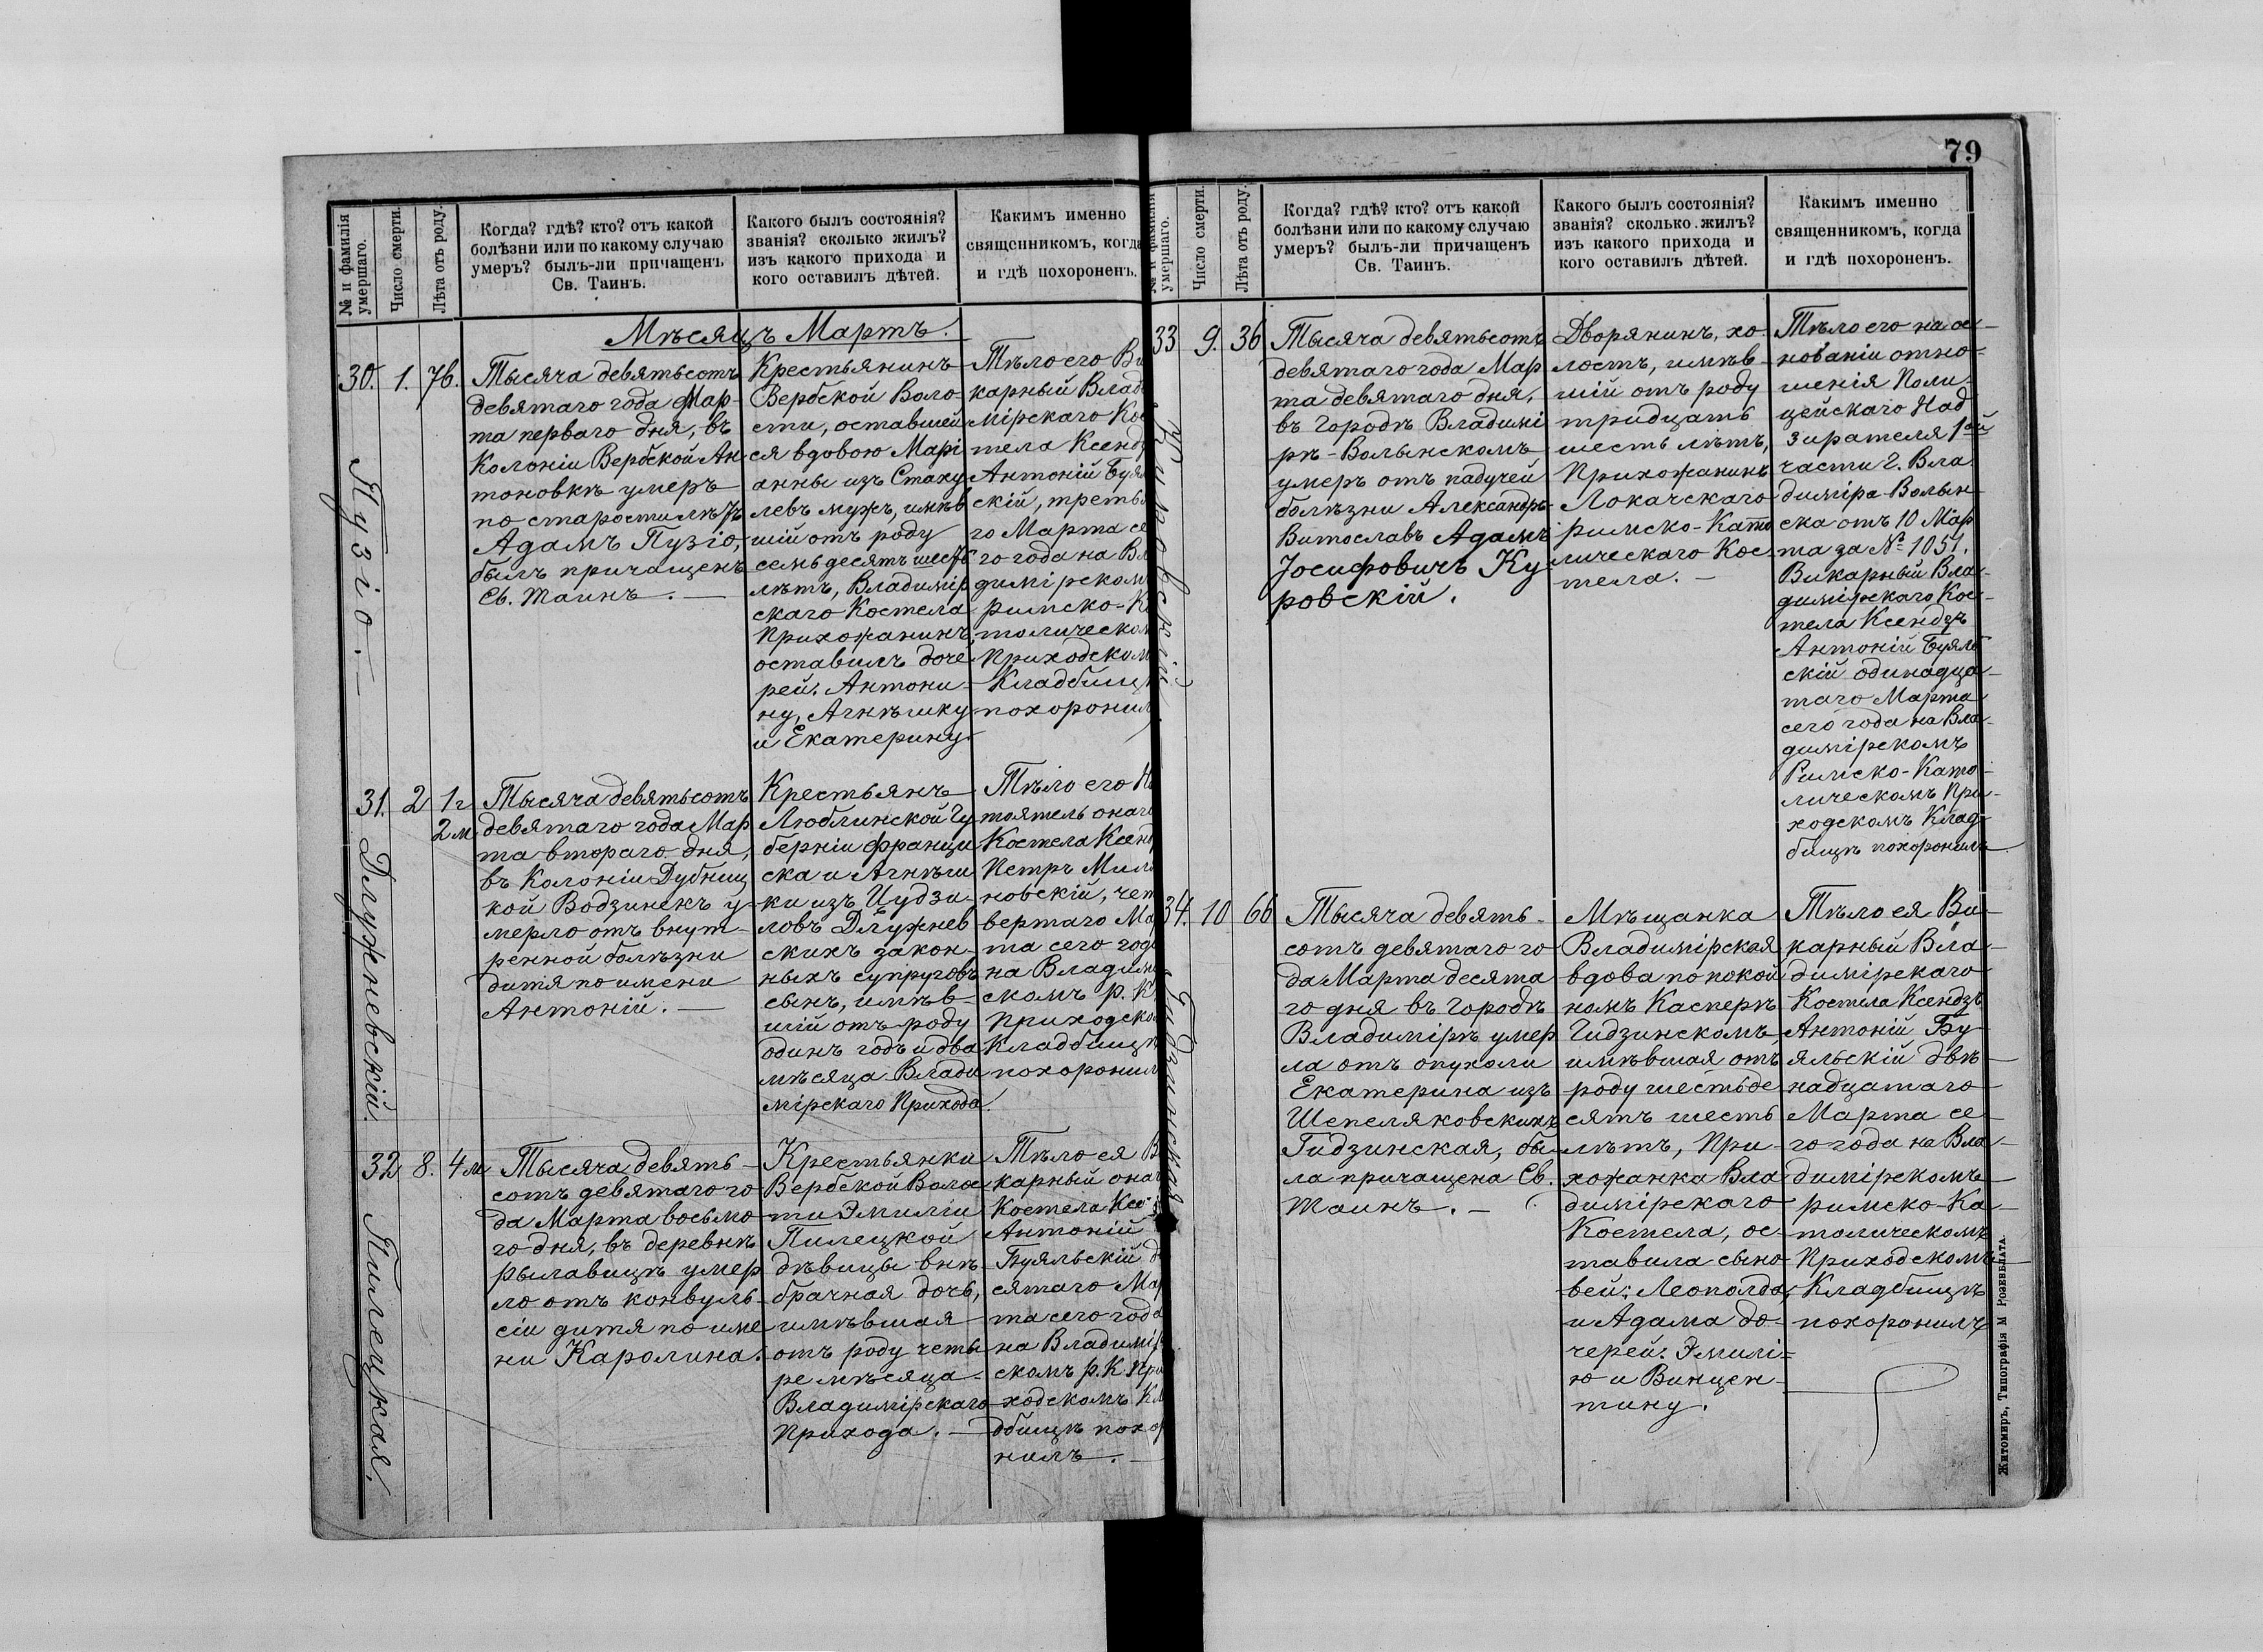 79
№ и фамилія
умершаго.
Число смерти.
Лѣта отъ роду.
Когда? гдѣ? кто? отъ какой
болѣзни или по какому случаю
умеръ? былъ-ли причащенъ
Св. Таинъ.
Какого былъ состоянія?
званія? сколько жилъ?
изъ какого прихода и
кого оставилъ дѣтей.
Какимъ именно
священникомъ, когда
и гдѣ похороненъ.
Мѣсяцъ Мартъ.
30.
Пузіо.
1.
76.
Тысяча девятьсотъ
девятаго года Мар-
та перваго дня, въ
Колоніи Вербской Ан-
тоновкѣ умеръ
по старости лѣтъ
Адамъ Пузіо,
былъ причащенъ
Св. Таинъ.
Крестьянинъ
Вербской Воло-
сти, оставшей
ся вдовою Марі
анны изъ Стаху
левъ мужъ, имѣв
шій отъ роду
семьдесятъ шесть
лѣтъ, Владимір
скаго Костела
Прихожанинъ,
оставилъ доче
рей: Антони-
ну, Агнѣшку
и Екатерину.
Тѣло его Ви
карный Влад
мірскаго Кос
тела Ксендз
Антоній Буял
скій, третья
го Марта се
го года на Вл
димірском
римско-К
толическом
Приходском
Кладбищѣ
похоронил
31.
Длужневскій.
2
1 г
2 м.
Тысяча девятьсотъ
девятаго года Мар
та втораго дня,
въ Колоніи Дубниц
кой Водзинекъ у-
мерло отъ внут-
ренной болѣзни
дитя по имени
Антоній.
Крестьянъ
Люблинской Гу
берніи Францы
ска и Агнѣш
ки изъ Цудзи-
ловъ Длужнев
скихъ закон-
ныхъ супруговъ
сынъ, имѣв-
шій отъ роду
одинъ годъ и два
мѣсяца Влади
мірскаго Прихода.
Тѣло его На
тоятель онаго
Костела Ксенд
Петръ Мил
новскій, чет
вертаго Мар
та сего года
на Владимі
скомъ р. К
Приходско
Кладбищѣ
похоронил
32
Пилецкая.
8.
4 м
Тысяча девять-
сотъ девятаго го-
да Марта восьмо-
го дня, въ деревнѣ
Рылавицѣ умер
ло отъ конвуль-
сіи дитя по име
ни Каролина.
Крестьянки
Вербской Волос
ти Эмиліи
Пилецкой
дѣвицы внѣ-
брачная дочь,
имѣвшая
отъ роду четы
ре мѣсяца
Владимірскаго
Прихода.
Тѣло ея В
карный онаг
Костела Ксен
Антоній
Буяльскій д
сятаго Мар
та сего года
на Владимір
скомъ р. К. При
ходскомъ Кла
дбищѣ похор
нилъ.
№ и фамилія
умершаго.
Число смерти.
Лѣта отъ роду.
Когда? гдѣ? кто? отъ какой
болѣзни или по какому случаю
умеръ? былъ-ли причащенъ
Св. Таинъ.
Какого былъ состоянія?
званія? сколько жилъ?
изъ какого прихода и
кого оставилъ дѣтей.
Какимъ именно
священникомъ, когда
и гдѣ похороненъ.
33
Куровскій.
9.
36
Тысяча девятьсотъ
девятаго года Мар
та девятаго дня,
въ Городѣ Владимі
рѣ-Волынскомъ
умеръ отъ падучей
болѣзни Александръ-
Витославъ Адамъ
Іосифовичъ Ку
ровскій.
Дворянинъ, хо
лостъ, имѣв-
шій отъ роду
тридцать
шесть лѣтъ,
Прихожанинъ
Локачскаго
римско-Като
лическаго Кос
тела.
Тѣло его на ос-
нованіи отно-
шенія Поли-
цейскаго Над
зирателя 1ой
части г. Вла
диміра-Волын-
ска отъ 10 Мар
та за № 1051.
Викарный Вла-
димірскаго Кос-
тела Ксендзъ
Антоній Буяль
скій одинадца-
таго Марта
сего года на Вла-
димірскомъ
Римско-Като-
лическомъ При-
ходскомъ Клад-
бищѣ похоронилъ
34.
Гидзинская
10
66
Тысяча девять-
сотъ девятаго го-
да Марта десята
го дня въ Городѣ
Владимірѣ умер
ла отъ опухоли
Екатерина изъ
Шепеляковскихъ
Гидзинская, бы
ла причащена Св.
Таинъ.
Мѣщанка
Владимірская
вдова по покой
номъ Касперѣ
Гидзинскомъ,
имѣвшая отъ
роду шестьде
сятъ шесть
лѣтъ, При-
хожанка Вла
димірскаго
Костела, ос-
тавила сыно-
вей: Леопольда,
и Адама до-
черей: Эмилі-
ю и Винцен-
тину.
Тѣло ея Ви-
карный Вла-
димірскаго
Костела Ксендзъ
Антоній Бу-
яльскій двѣ-
надцатаго
Марта се-
го года на Вла-
димірскомъ
римско-Ка-
толическомъ
Приходскомъ
Кладбищѣ
похоронилъ
Житомиръ, Типографія М. Розенблата.